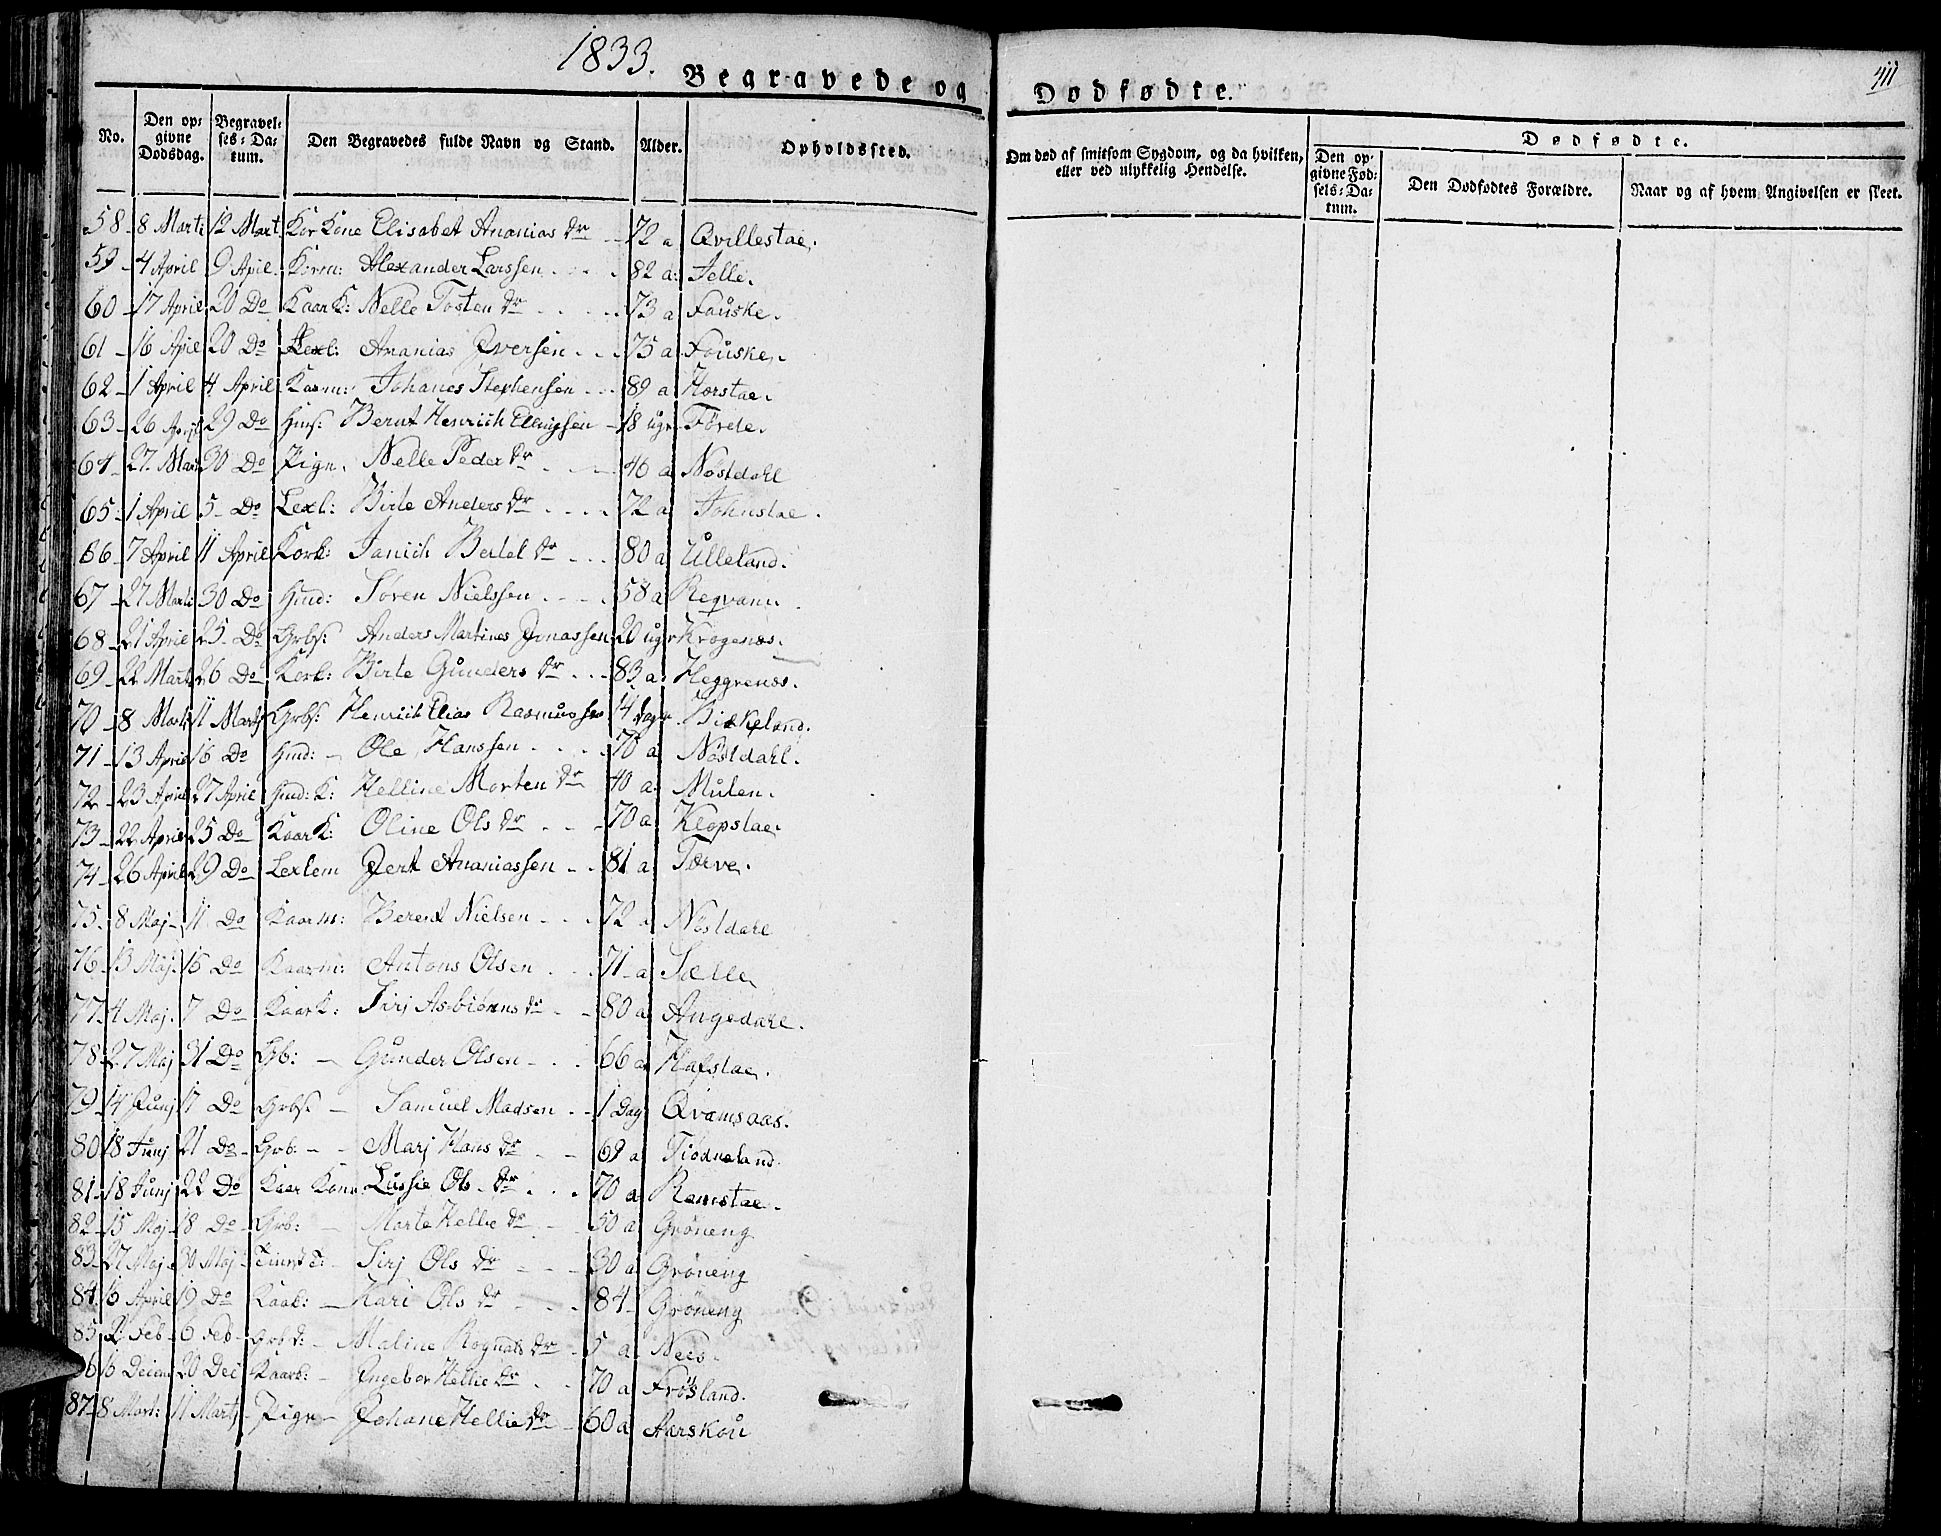 1833.
Begravede og Dødfødte.
411
No. Den opgivne Dødsdag. Begravelses-Datum. Den Begravedes fulde Navn og Stand. Alder. Opholdssted. Om død af smitsom Sygdom, og da hvilken, eller ved ulykkelig Hendelse. Dødfødte. Den opgivne Fødsels-Datum. Den Dødfødtes Forældre. Naar og af hvem Angivelsen er skeet.
58 - 8 Marti 12 Mart Kor Kone Elisabet Ananias Dr - 72 a Qvillestae.
59 - 4 April 9 Apil. Korm: Alexander Larssen - 82 a: Jelle.
60 - 17 April 20 Do Kaar K: Nelle Tosten Dr - 73 a Fauske.
61 - 16 Apil 20 Do Lexl: Ananias Iversen - 75 a Fouske.
62 - 1 April 4 April Karm: Johanes Stephensen - 89 a Horstae.
63 - 26 April 29 Do Huus: Bernt Henrich Ellingsen - 18 ugr Förde.
64 - 27. Mart 30 Do Pign. Nelle Peder Dr - 46 a Nöstdahl
65 - 1 April 5 - Do Lexl: Birte Anders Dr - 72 a Johnstae.
66 - 7 April 11 April Kork: Janich Bertel Dr - 80 a Ulleland.
67 - 27 Marti 30 Do Huud: Sören Nielssen - 58 a Reqvam
68 - 21 April 25 - Do Grbs: Anders Martines Jonassen 20 ugr Krogenæs.
69 - 22 Mart 26 Do Kork: Birte Gunders Dr - 83 a Heggrenæs.
70 - 8 Marti 11 Martj Grbs: Henrich Elias Rasmussen 14 dage Birkeland.
71 - 13 April 16 Do Huud: - Ole Hanssen - 70 a Nöstdahl.
72 - 23 April 27 April Huud: K: Helline Morten Dr 40 a Mulen.
73 - 22 April 25 Do Kaar K: Oline Ols Dr - 70 a Klopstae.
74 - 26 April 29 Do Lexlem Gert Ananiassen - 81 a Tarve.
75 - 8 Maj - 11 Do Kaarm: Berent Nielsen - 72 a Nöstdahl
76 - 13 Maj. 15 Do Kaarm: Antons Olsen - 71 a Sælle
77 - 4 Maj. 7 Do Kaar K: Sirj Asbiönns Dr - 80 a Angedahl.
78 - 27 Maj 31 Do Grb: - Gunder Olsen - 66 a Hafstae.
79 - 14 Junj 17 Do Grbs. - Samuel Madsen - 1 Dag Qvamsaas.
80 - 18 Junj 21 Do - Grb: - Marj Hans Dr - 69 a Tiödneland.
81 - 18 Junj 22 Do Kaar Kone Lussie Ols - Dr - 70 a Ramstae.
82 - 15 Maj - 18 Do - Grb: - Marte Hellie Dr - 50 a Gröneng
83 - 27 Maj - 30 Maj - Sirj Ols Dr - 30 a Gröneng
84 - 16 April 19 Do Kaak: - Kari Ols Dr - 84 - Gröneng
85 - 2 Feb - 6 Feb - Maline Rognals Dr - 5 a Nees.
86 - 16 Decem 20 Dec Kaark: - Ingebor Hellie Dr - 70 a Frösland.
87 - 8 Mart: 11 Martj - Pige - Johane Hellie Dr - 60 a Aarskou